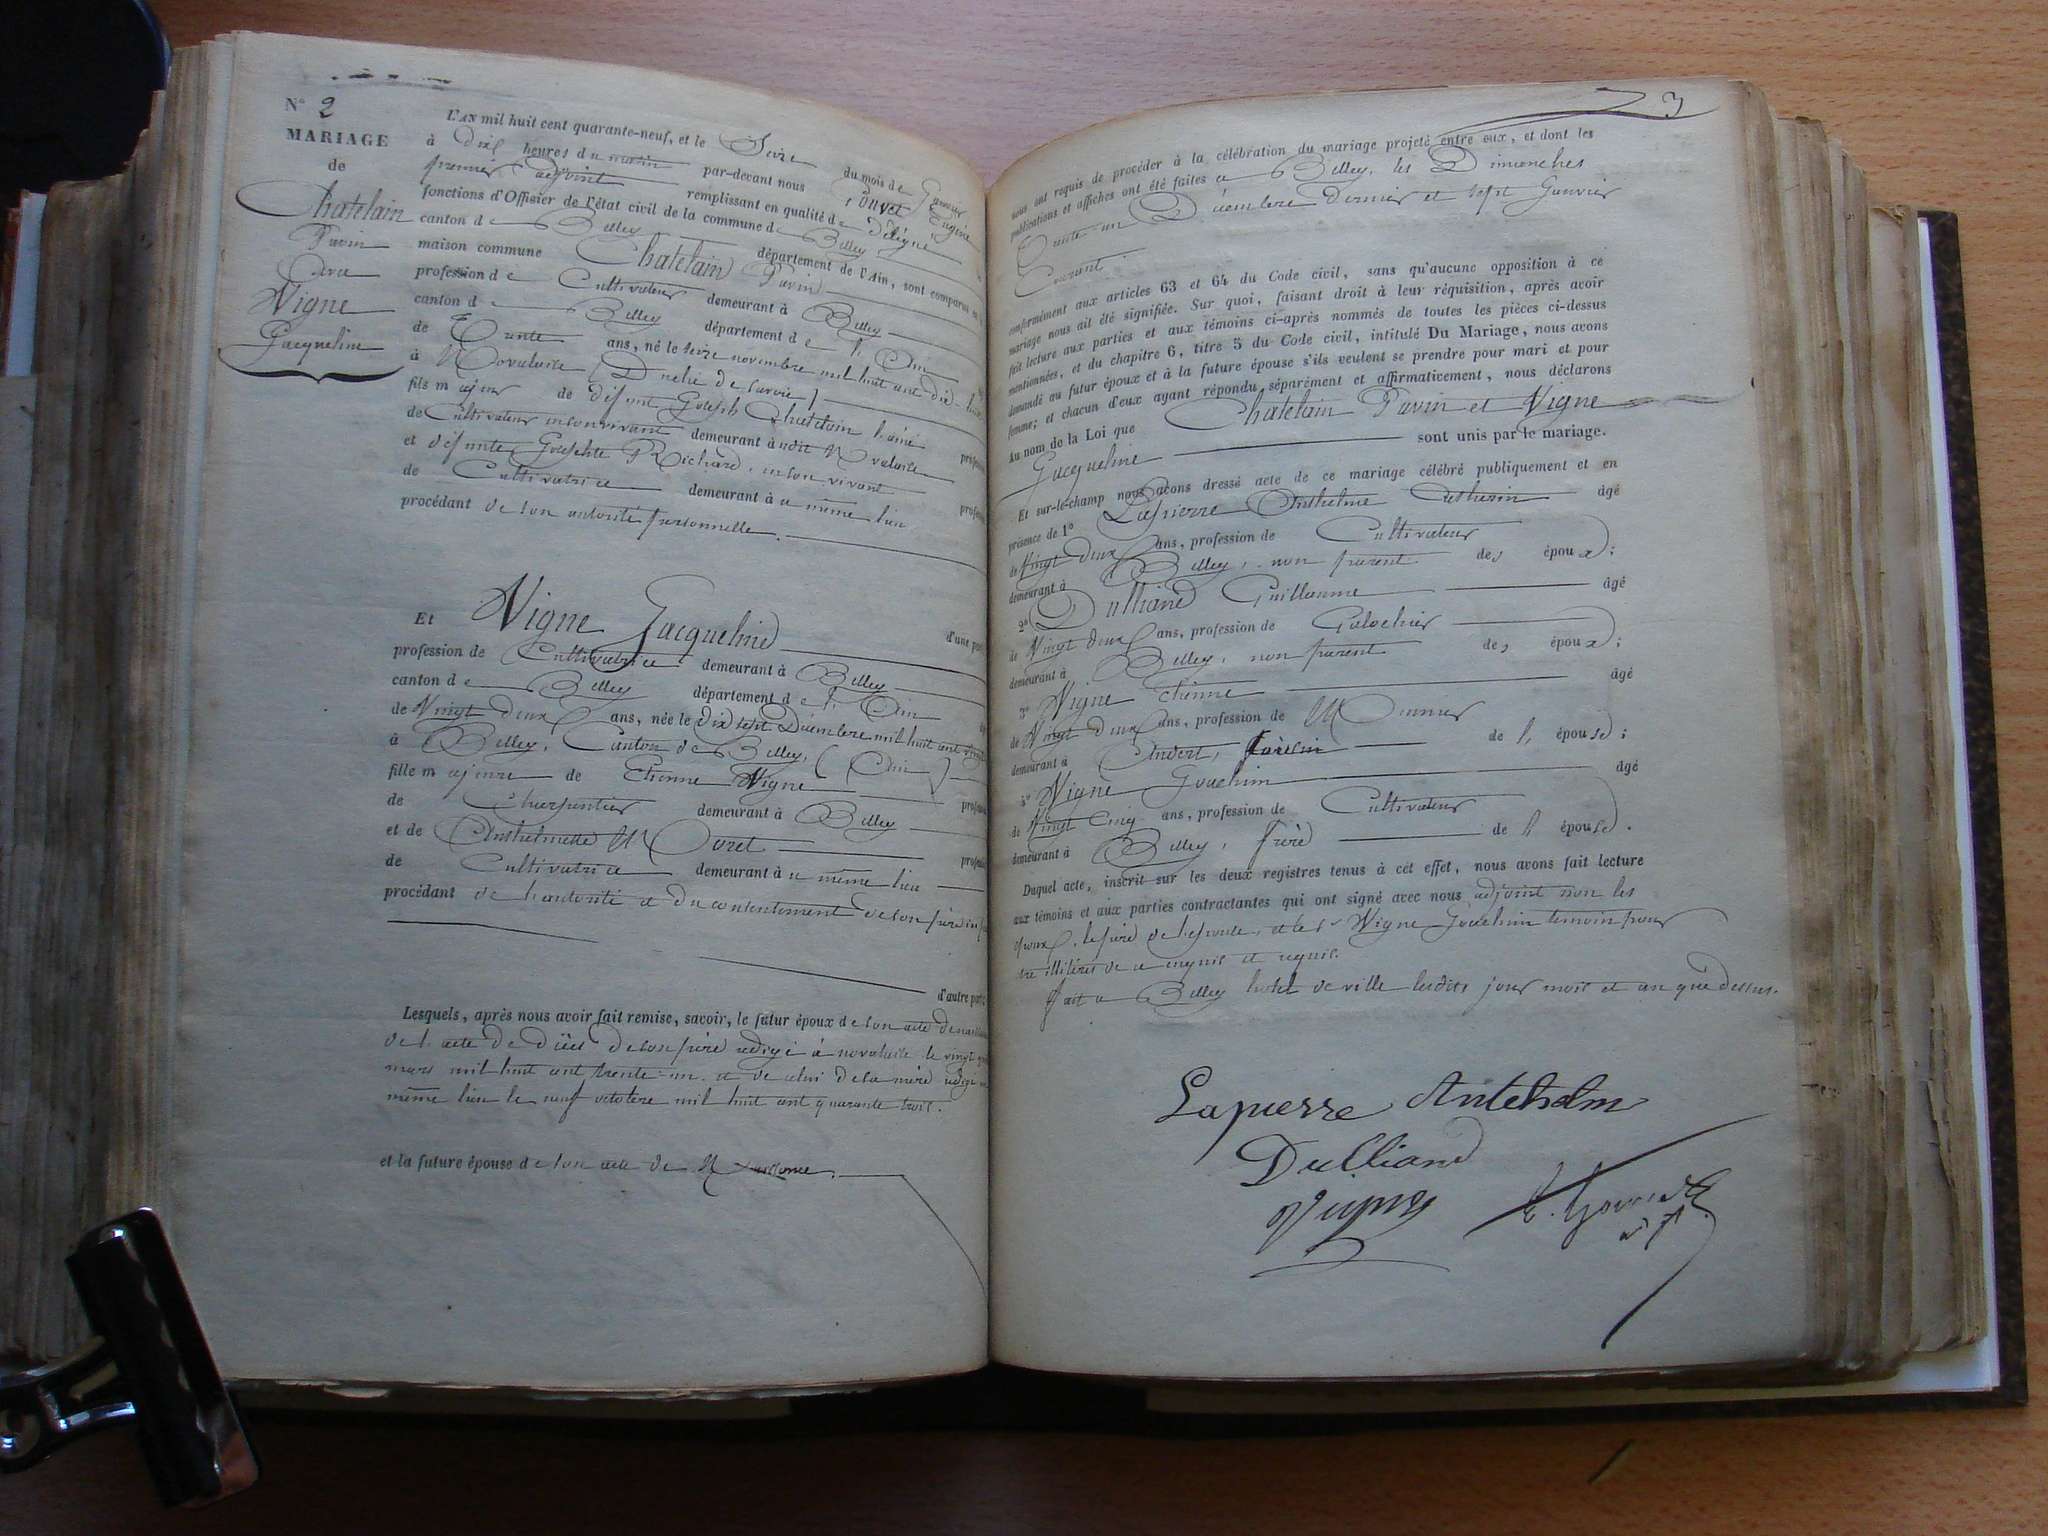 N° 2
MARIAGE
de
Chatelain
Pavin
avec
Vigne
Jacqueline
L'AN mil huit cent quarante-neuf, et le Seize du mois de Janvier
à dix heures du matin par-devant nous Eugène
premier adjoint remplissant en qualité de délégué
fonctions d'Officier de l'état civil de la commune de Belley
canton de Belley département de l'Ain, sont comparus en
maison commune Chatelain Pavin
profession de Cultivateur demeurant à Belley
canton de Belley département de l'Ain
de Trente ans, né le seize novembre mil huit cent dix-huit
à Novalaise (Duché de Savoie)
fils majeur de défunt Joseph Chatelain
de Cultivateur en son vivant demeurant à udit Novalaise
et défunte Josephte Richard, en son vivant
de Cultivatrice demeurant à ce même lieu
procédant de son autorité personnelle.
d'une part
Et Vigne Jacqueline
profession de Cultivatrice demeurant à Belley
canton de Belley département de l'Ain
de Vingt deux ans, née le dix sept Décembre mil huit cent vingt
à Belley, Canton de Belley, (Ain)
fille majeure de Etienne Vigne
de Charpentier demeurant à Belley
et de Anthelmette Moret
de Cultivatrice demeurant à ce même lieu
procédant de l'autorité et du consentement de son père ici
d'autre part
Lesquels, après nous avoir fait remise, savoir, le futur époux de son acte de naissance
de l'acte de décès de son père rédigé à novalaise le vingt
mars mil huit cent trente-un, et de celui de sa mère rédigé
même lieu le neuf octobre mil huit cent quarante trois.
et la future épouse de son acte de Naissance.
3
nous ont requis de procéder à la célébration du mariage projeté entre eux, et dont les
publications et affiches ont été faites à Belley, les Dimanches
Trente-un Décembre dernier et sept Janvier
Courant
conformément aux articles 63 et 64 du Code civil, sans qu'aucune opposition à ce
mariage nous ait été signifiée. Sur quoi, faisant droit à leur réquisition, après avoir
fait lecture aux parties et aux témoins ci-après nommés de toutes les pièces ci-dessus
mentionnées, et du chapitre 6, titre 5 du Code civil, intitulé Du Mariage, nous avons
demandé au futur époux et à la future épouse s'ils veulent se prendre pour mari et pour
femme; et chacun d'eux ayant répondu séparément et affirmativement, nous déclarons
au nom de la Loi que Chatelain Pavin et Vigne
Jacqueline sont unis par le mariage.
Et sur-le-champ nous avons dressé acte de ce mariage célébré publiquement et en
présence de 1° Lapierre Anthelme âgé
de Vingt deux ans, profession de Cultivateur
demeurant à Belley, non parent des époux;
2° Dulliand Guillaume âgé
de Vingt deux ans, profession de
demeurant à Belley, non parent des époux;
3° Vigne Etienne âgé
de Vingt deux ans, profession de Meunier
demeurant à Andert, Cousin de l'épouse;
4° Vigne Joachim âgé
de Vingt Cinq ans, profession de Cultivateur
demeurant à Belley, frère de l'épouse.
Duquel acte, inscrit sur les deux registres tenus à cet effet, nous avons fait lecture
aux témoins et aux parties contractantes qui ont signé avec nous adjoint non les
époux, le père de l'épouse, et le sr Vigne Joachim témoin pour
être illitérés de ce enquis et requis.
fait à Belley hotel de ville lesdits jour mois et an que dessus.
Lapierre Antehelm
Dulliand
Vigne